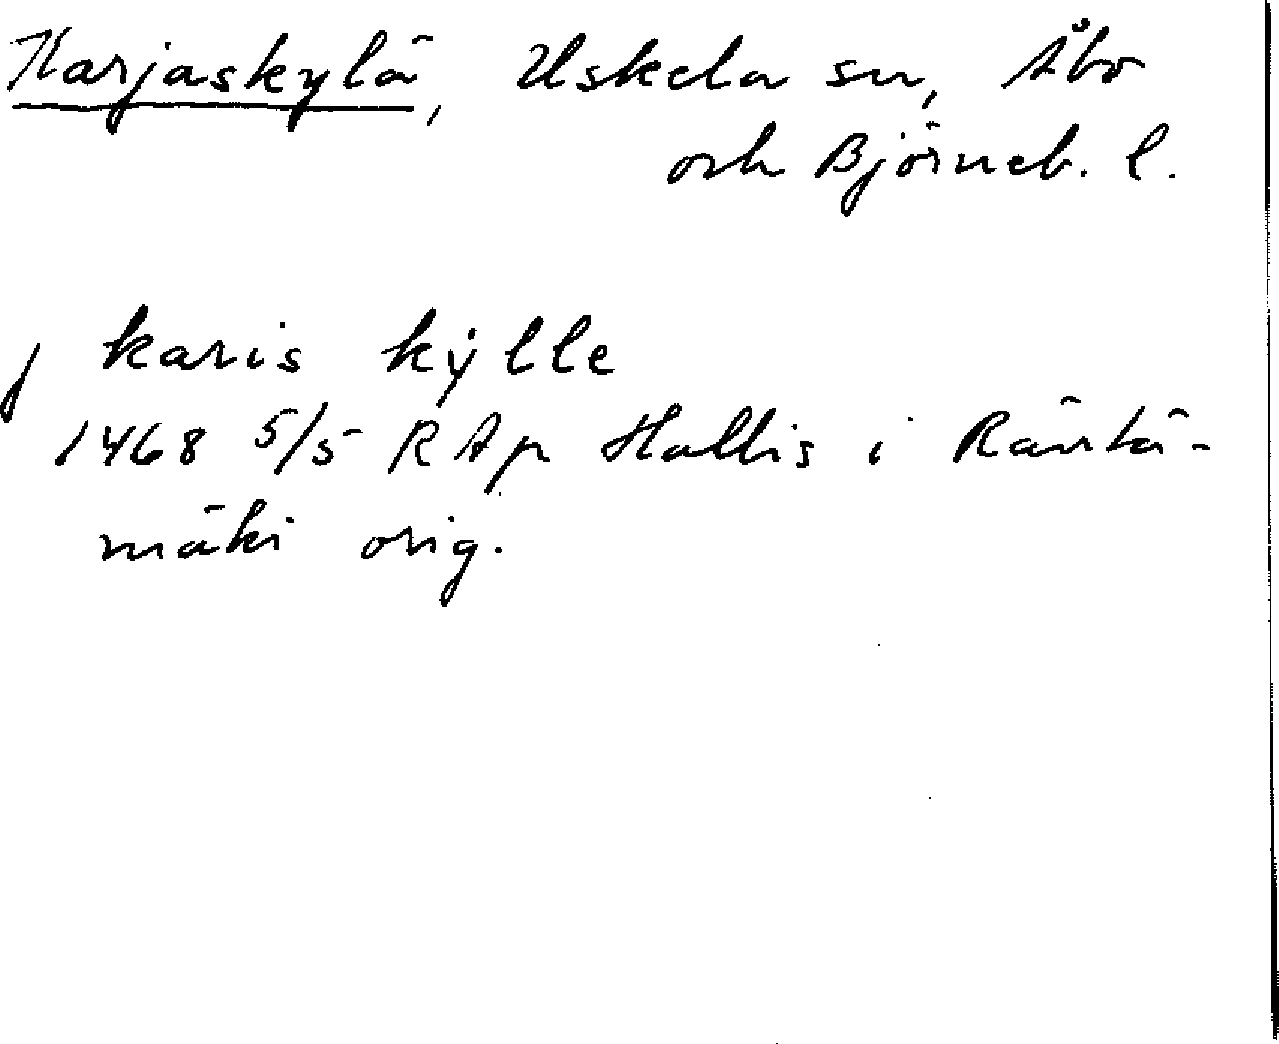 Karjaskylä, Uskela sn, Åbo
och Björneb. l.
j karis kÿlle
1468 5/5 RAp Hallis i Räntä-
mäki orig.